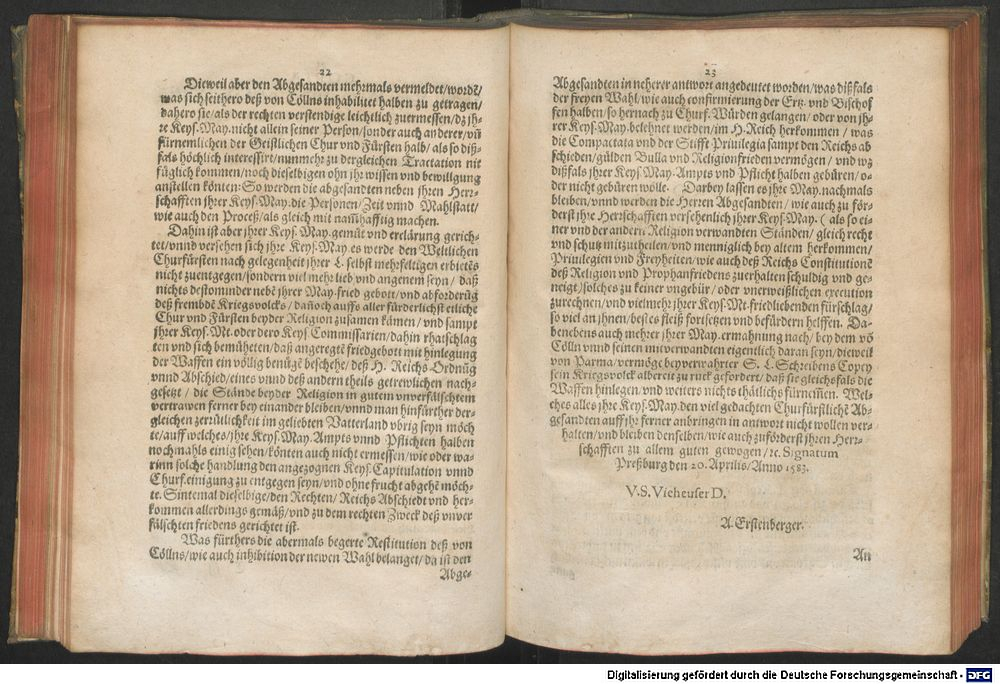 22
Dieweil aber den Abgesandten mehrmals vermeldet/wordē/
was sich seithero deß von Cöllns inhabilitet halben zu getragen/
dahero sie/als der rechten verstendige leichtlich zuermessen/dz jh-
re Keys. May. nicht allein seiner Person/sonder auch anderer/vñ
fürnemlichen der Geistlichen Chur vnd Fürsten halb/als so diß-
fals höchlich interessirt/nunmehr zu dergleichen Tractation nit
füglich kommen/noch dieselbigen ohn jhr wissen vnd bewillgung
anstellen könten: So werden die abgesandten neben jhren Herr-
schafften jhrer Keys. May. die Personen/Zeit vnnd Mahlstatt/
wie auch den Proceß/als gleich mit namhafftig machen.
Dahin ist aber jhrer Keys. May. gemüt vnd erclärung gerich-
tet/vnnd versehen sich jhre Keys. May. es werde den Weltlichen
Churfürsten nach gelegenheit jhrer L. selbst mehrfeltigen erbietēs
nicht zuentgegen/sondern viel mehr lieb vnd angenem seyn/ daß
nichts destominder nebē jhrer May. fried gebott/vnd abforderūg
deß frembdē Kriegsvolcks/dañoch auffs aller fürderlichst etliche
Chur vnd Fürsten beyder Religion zusamen kämen/vnd sampt
jhrer Keys. Mt. oder dero Keys. Commissarien/dahin rhatschlag
ten vnd sich bemüheten/daß angeregtē friedgebott mit hinlegung
der Waffen ein völlig benügē beschehe/deß H. Reichs Ordnūg
vnnd Abschied/eines vnnd deß andern theils getrewlichen nach-
gesetzt / die Stände beyder Religion in gutem vnverfälschtem
vertrawen ferner bey einander bleiben/vnnd man hinfürther der-
gleichen zerrütlichkeit im geliebten Vatterland vbrig seyn möch
te/auff welches/jhre Keys. May. Ampts vnnd Pflichten halben
nochmahls einig sehen/könten auch nicht ermessen/wie oder wa-
rinn solche handlung den angezognen Keys. Capitulation vnnd
Churf. einigung zu entzgegen seyn/vnd ohne frucht abgehē möch-
te. Sintemal dieselbige/den Rechten/Reichs Abschiedt vnd her-
kommen allerdings gemäß/vnd zu dem rechten Zweck deß vnver
fälschten friedens gerichtet ist.
Was fürthers die abermals begerte Restitution deß von
Cöllns/wie auch inhibition der newen Wahl belanget/da ist den
Abge-
23
Abgesandten in neherer antwort angedeutet worden/was dißfals
der freyen Wahl/wie auch confirmierung der Ertz. vnd Bischof
fen halben/so hernach zu Churf. Würden gelangen/oder von jh-
rer Keys. May. belehnet werden/im H. Reich herkommen / was
die Compactata vnd der Stifft Priuilegia sampt den Reichs ab
schieden/gülden Bulla vnd Religionfrieden vermögen / vnd wz
dißfals jhrer Keys. May. Ampts vnd Pflicht halben gebüren/o-
der nicht gebüren wölle. Darbey lassen es jhre May. nachmals
bleiben/vnnd werden die Herren Abgesandten/wie auch zu för-
derst jhre Herschafften versehenlich jhrer Keys. May. ( als so ei-
ner vnd der andern Religion verwandten Ständen/gleich recht
vnd schutz mitzutheilen/vnd menniglich bey altem herkommen/
Priuilegien vnd Freyheiten/wie auch deß Reichs Constitutionē
deß Religion vnd Prophanfriedens zuerhalten schuldig vnd ge-
neigt/solches zu keiner vngebür/ oder vnerweißlichen execution
zurechnen/vnd vielmehr jhrer Keys. Mt. friedliebenden fürschlag/
so viel an jhnen/best es fleiß fortsetzen vnd befürdern helffen. Da-
benebens auch mehrer jhrer May. ermahnung nach/bey dem vō
Cölln vnnd seinen mitverwandten eigentlich daran seyn/dieweil
von Parma/vermöge beyverwahrter S. L. Schreibens Copey
sein Kriegsvolck albereit zu ruck gefordert/daß sie gleichsfals die
Waffen hinlegen/vnd weiters nichts thätlichs fürnemen. Wel-
ches alles jhre Keys. May. den viel gedachten Churfürstlichē Ab-
gesandten auff jhr ferner anbringen in antwort nicht wollen ver-
halten/vnd bleiben denselben/wie auch zuförderst jhren Herr-
schafften zu allem guten gewogen/ꝛc. Signatum
Preßburg den 20. Aprilis/Anno 1583.
V. S. Vieheuser D.
A. Erstenberger.
An
Digitalisierung gefördert durch die Deutsche Forschungsgemeinschaft - DFG